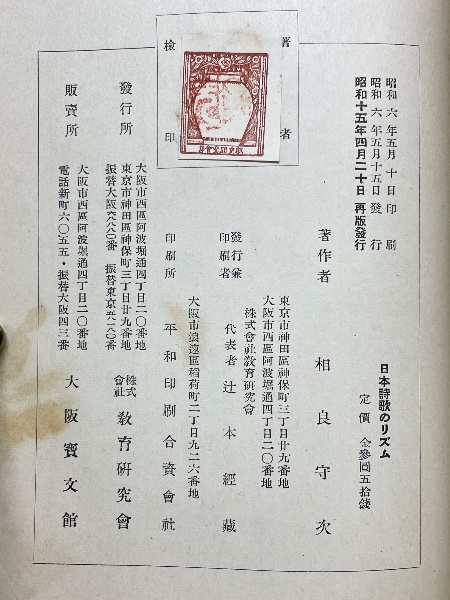 昭和六年五月十日印刷
昭和六年五月十五日發行
昭和十五年四月二十日再版發行
日本詩歌のリズム
定價 金參圓五拾錢
著者
檢印
著作者 相良守次
東京市神田區神保町三丁目廿九番地
大阪市西區阿波堀通四丁目二〇番地
株式會社教育研究會
發行兼印刷者 代表者 辻本經藏
大阪市浪速區稻荷町二丁目九二六番地
印刷所 平和印刷合資會社
發行所
大阪市西區阿波堀通四丁目二〇番地
東京市神田區神保町三丁目廿九番地
株式會社 教育研究會
販賣所
大阪市西區阿波堀通四丁目二〇番地
電話新町六〇五五・振替大阪四三番
大阪寶文館